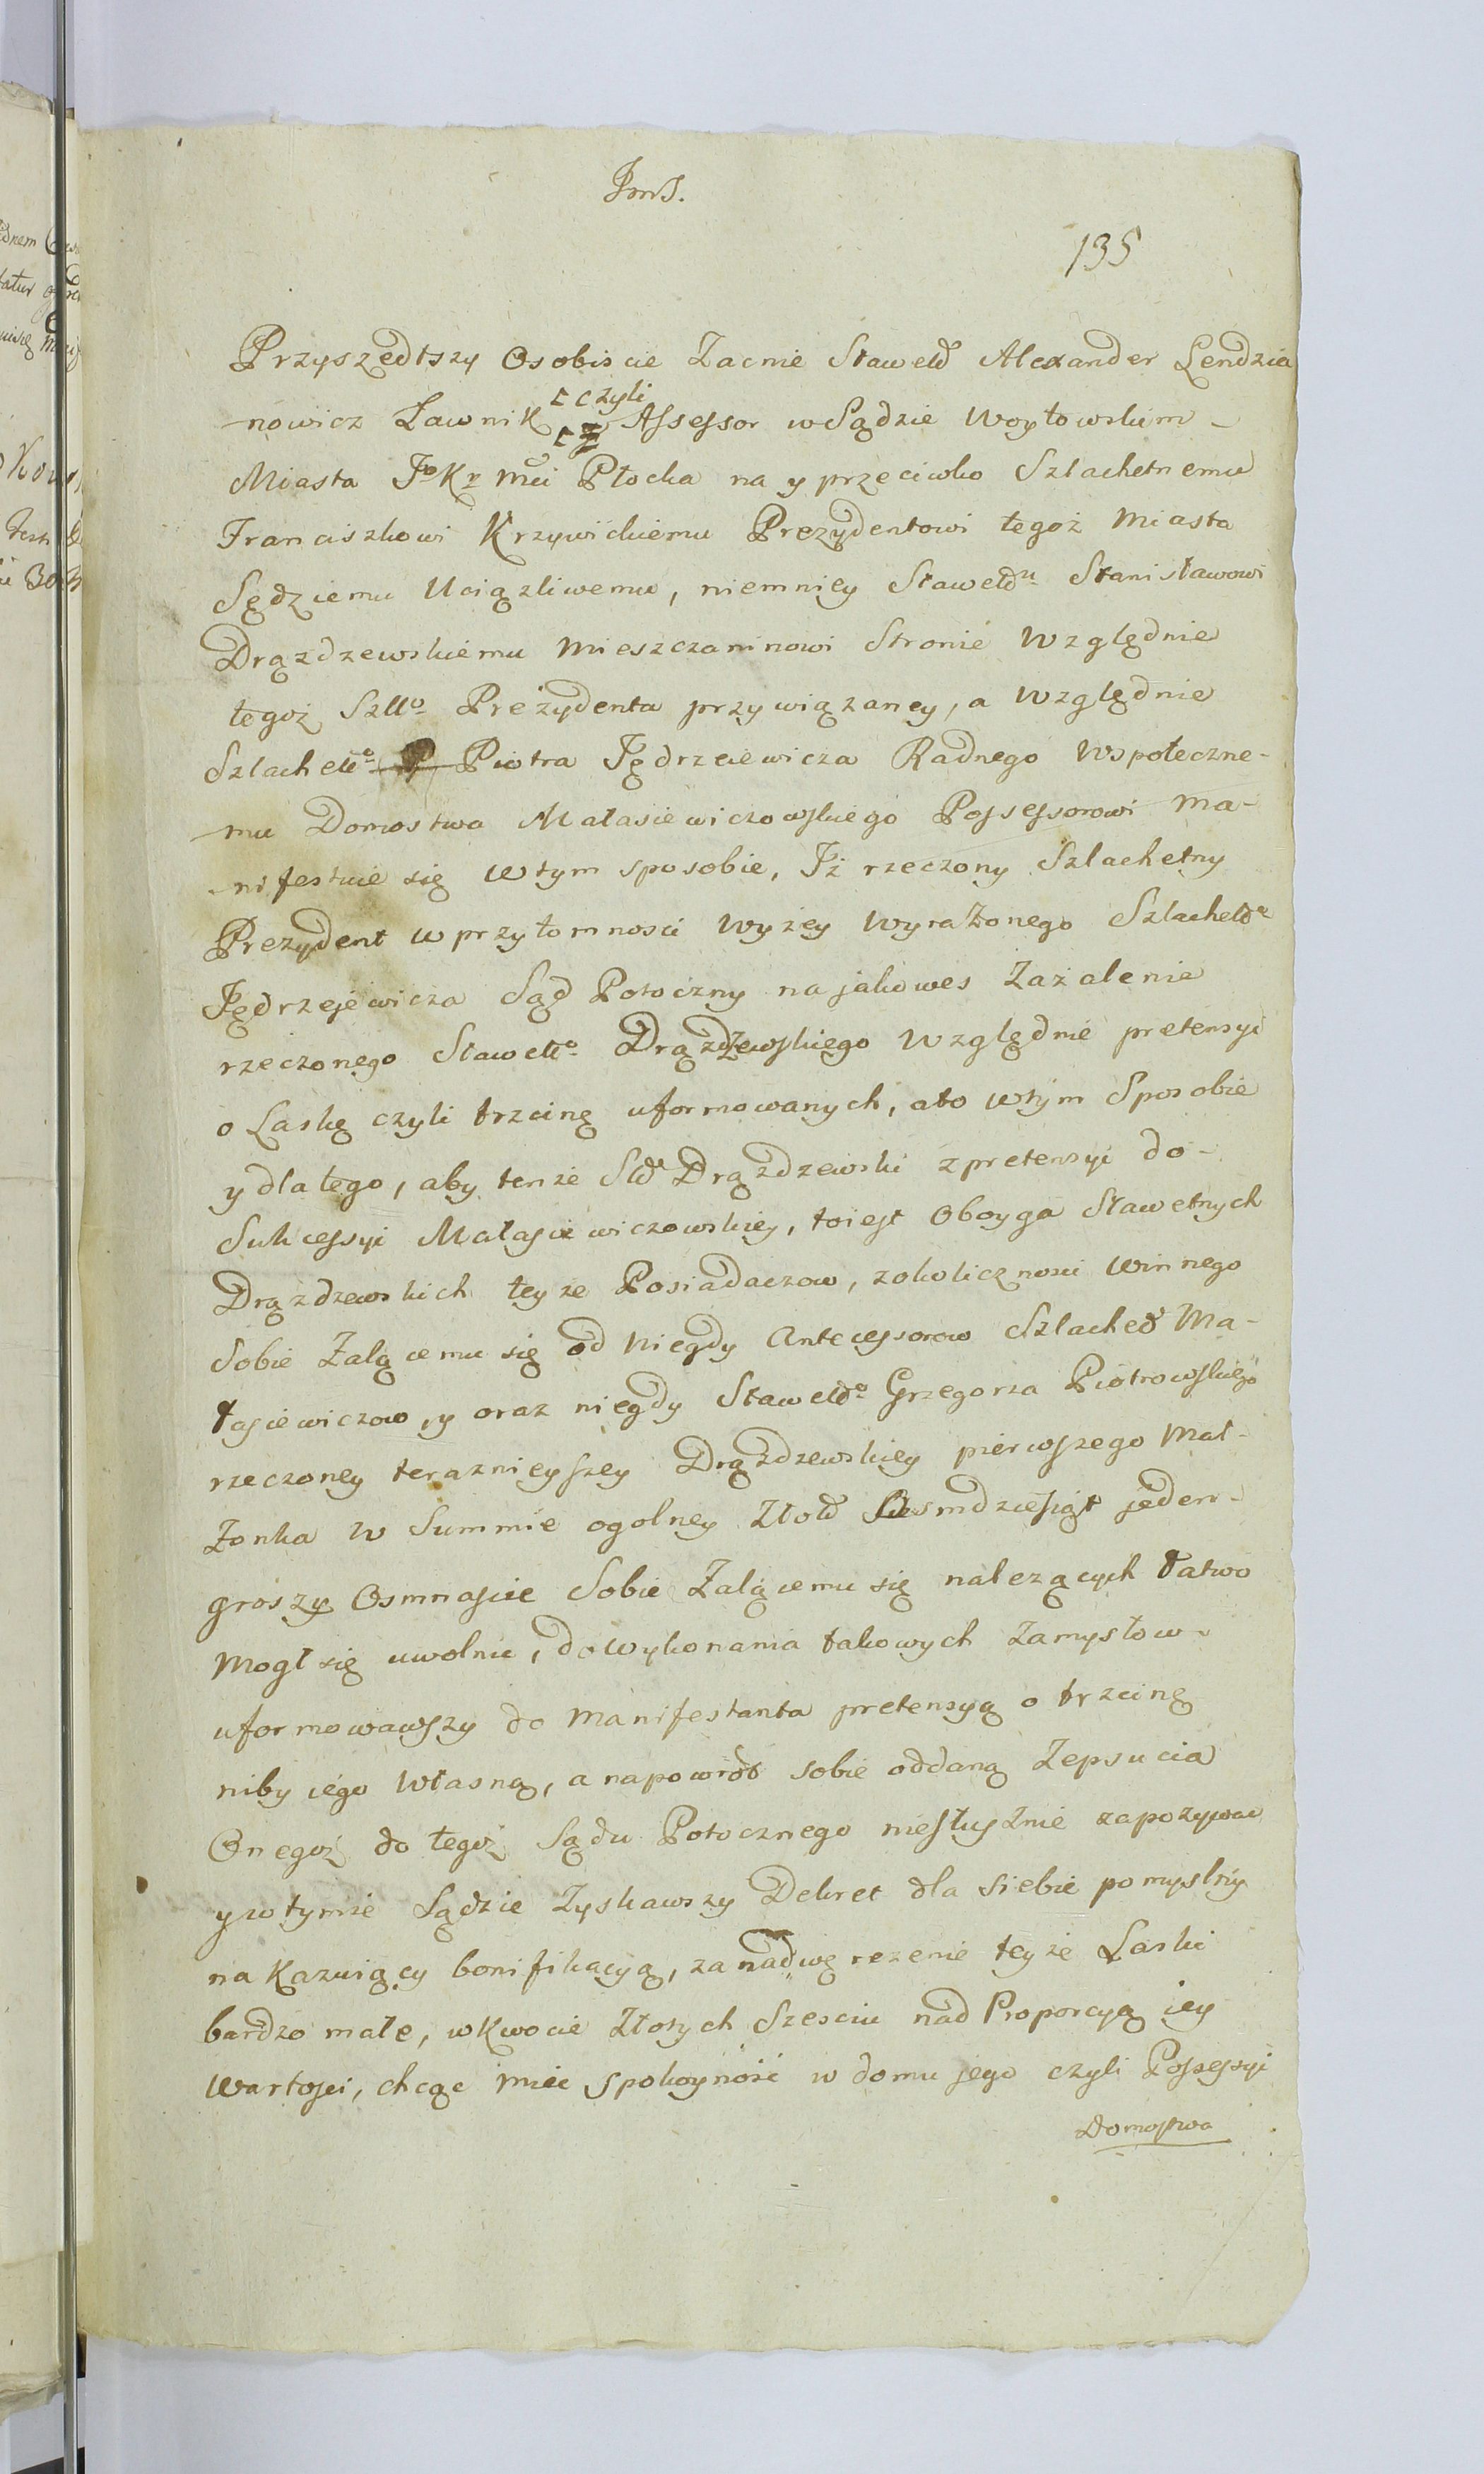 JmJ.
135
Przyszedłszy Osobiscie Zacnie Sławetd Alexander Lendzia
nowicz Ławnik czyli Assessor w Sądzie Woytowskim
Miasta JoKr Mci Płocka na y przeciwko Szlachetnemu
Franciszkowi Krzywickiemu Prezydentowi tegoż Miasta
Sędziemu Uciązliwemu, niemniey Sławetdu Stanisławowi
Drązdzewskiemu Mieszczaninowi Stronie Względnie
tegoż Szlto Prezydenta przywiązaney, a Względnie
Szlachetto Piotra Jędrzeiewicza Radnego Wspołeczne-
mu Domostwa Małasiewiczowskiego Possessorowi Ma-
nifestuie się w tym sposobie, Iż rzeczony Szlachetny
Prezydent w przytomnosci Wyżey Wyrażonego Szlachetdo
Jędrzejewicza Sąd Potoczny na jakowes Zażalenie
rzeczonego Sławetto Drązdzewskiego Względnie pretensyi
o Laskę czyli trzcinę uformowanych, ato wtym Sposobie
y dla tego, aby tenże Słd Drązdzewski z pretensyi do-
Sukcessyi Małasiewiczowskiey, toiest Oboyga Sławetnych
Drązdzewskich teyże Posiadaczow, z okolicznosci Winnego
Sobie Zalącemu się od Niegdy Antecessorow Szlached Ma-
łasiewiczow, y oraz niegdy Sławetdo Grzegorza Piotrowskiego
rzeczoney teraznieyszey Drązdzewskiey pierwszego Mał-
żonka w Summie ogolney Złotd Osmdziesiąt jeden-
groszy Osmnascie Sobie Zalącemu się nalezących Łatwo
Mogł się uwolnic, do Wykonania takowych Zamysłow
uformowawszy do Manifestanta pretensyą o trzcinę
niby iego Własną, a napowrot sobie oddaną Zepsucia
Onegoż do tegoż Sądu Potocznego niesłusznie zapozywac
y w tymże Sądzie Zyskawszy Dekret dla Siebie pomyslny
nakazuiący bonifikacyą, za nadwęrezenie teyże Laski
bardzo małe, w Kwocie Złotych Szesciu nad Proporcyą iey
Wartosci, chcąc mieć Spokoyność w domu jego czyli Possessyi
Domostwa